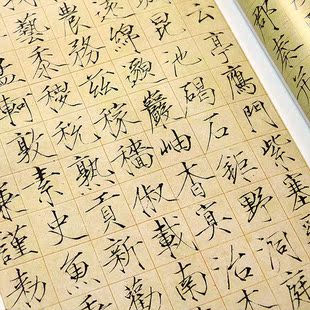 郡秦并
云亭鴈門紫塞
昆池碣石鉅野洞庭
綿邈巖岫杳冥治
農務茲稼穡俶載南
藝黍稷稅熟貢新勸
軻敦素史魚
謹勑